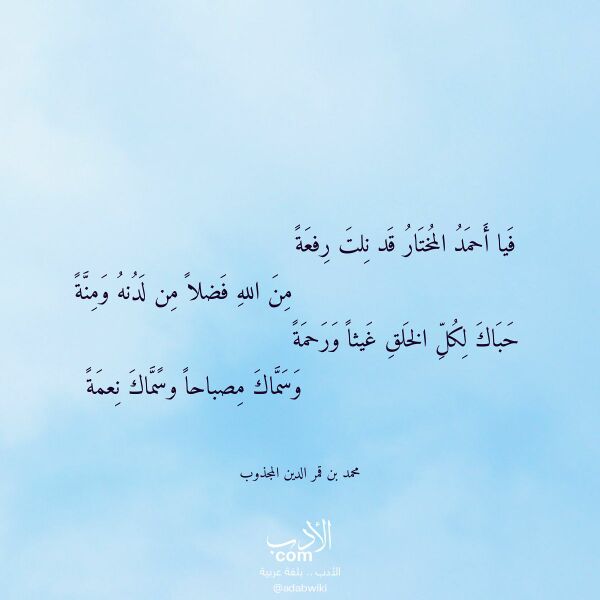 فَيا أَحمَدُ المُختَارُ قَد نِلتَ رِفعَةً
مِنَ اللهِ فَضلاً مِن لَدُنهُ وَمِنَّةً
حَبَاكَ لِكُلِّ الخَلقِ غَيثاً وَرَحمَةً
وَسَمَّاكَ مِصباحاً وسَمَّاكَ نِعمَةً
محمد بن قمر الدين المجذوب
الأدب
com
الأدب .. بلغة عربية
@adabwiki